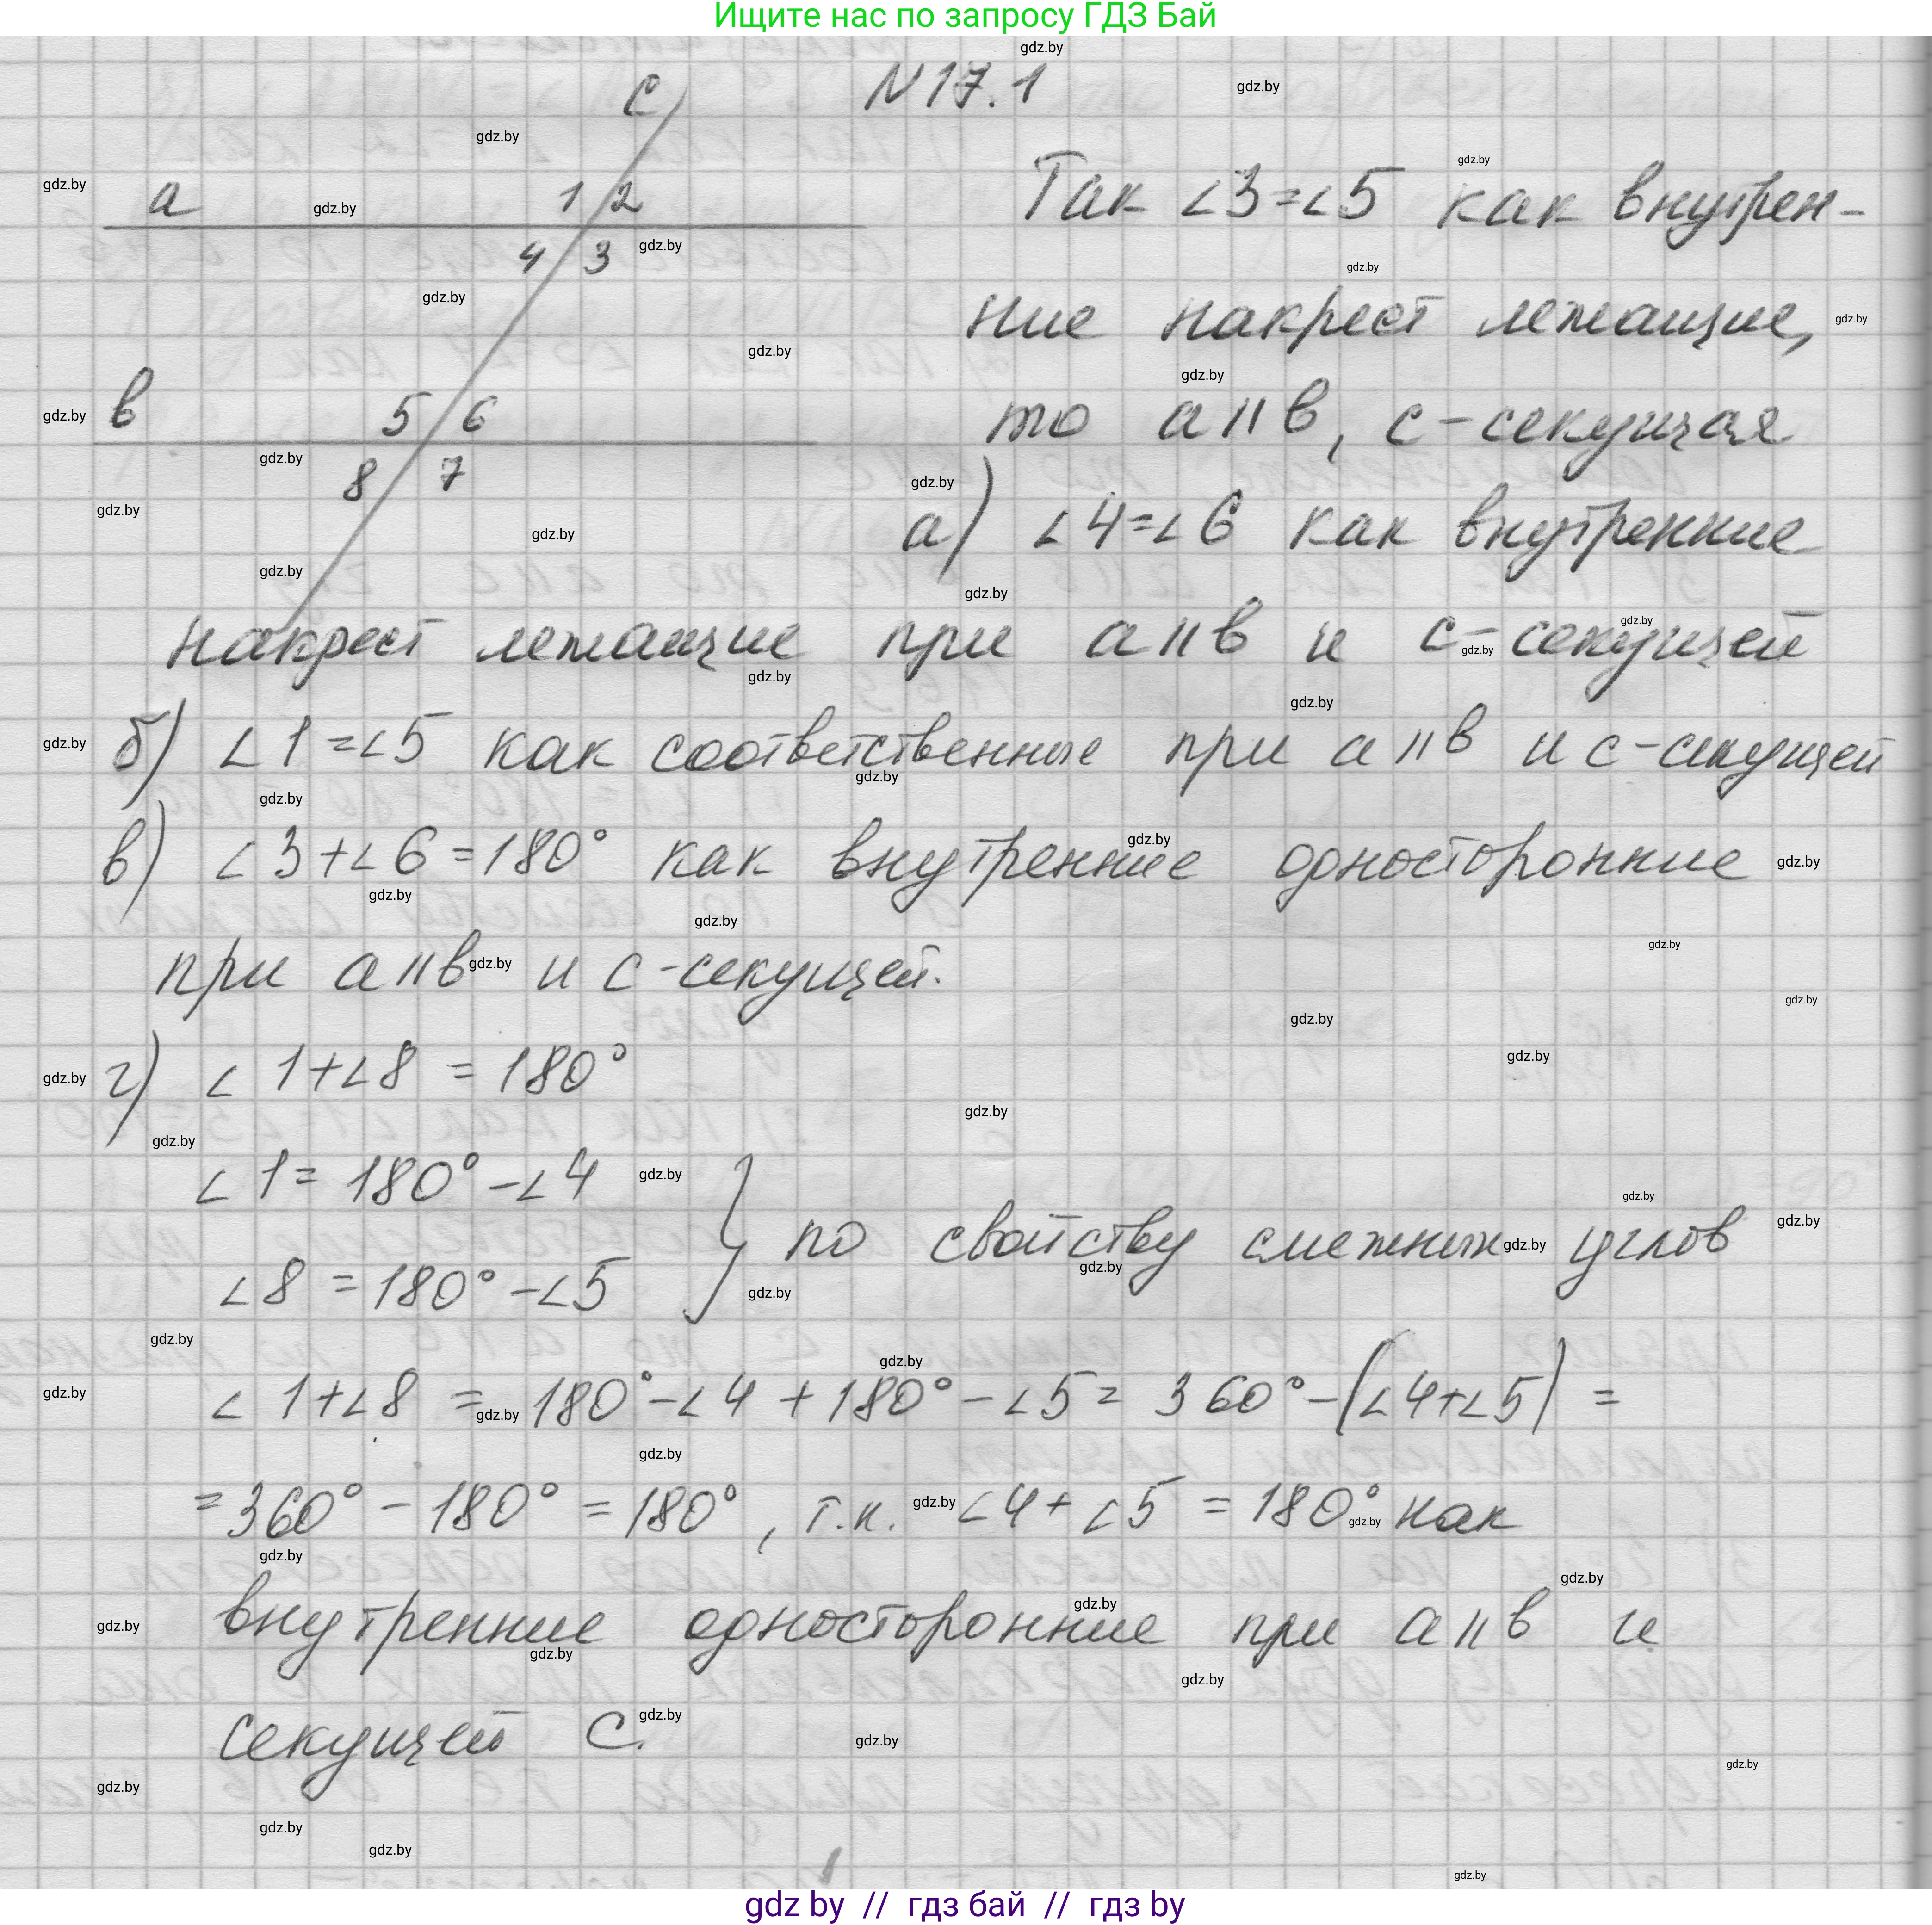 Ищите нас по запросу ГДЗ Бай
N 17.1
c
a 1 2
4 3
в 5 6
8 7
Так ∠3=∠5 как внутрен-
ние накрест лежащие,
то a॥в, c-секущая
а) ∠4=∠6 как внутренние
накрест лежащие при a॥в и c-секущей
б) ∠1=∠5 как соответственные при a॥в и c-секущей
в) ∠3+∠6=180° как внутренние односторонние
при a॥в и c-секущей.
г) ∠1+∠8 = 180°
∠1= 180°-∠4
∠8 = 180°-∠5 } по свойству смежных углов
∠1+∠8 = 180°-∠4 + 180°-∠5 = 360°-(∠4+∠5) =
=360° - 180° = 180°, т.к. ∠4+∠5 = 180° как
внутренние односторонние при a॥в и
секущей c.
gdz by // гдз бай // гдз by